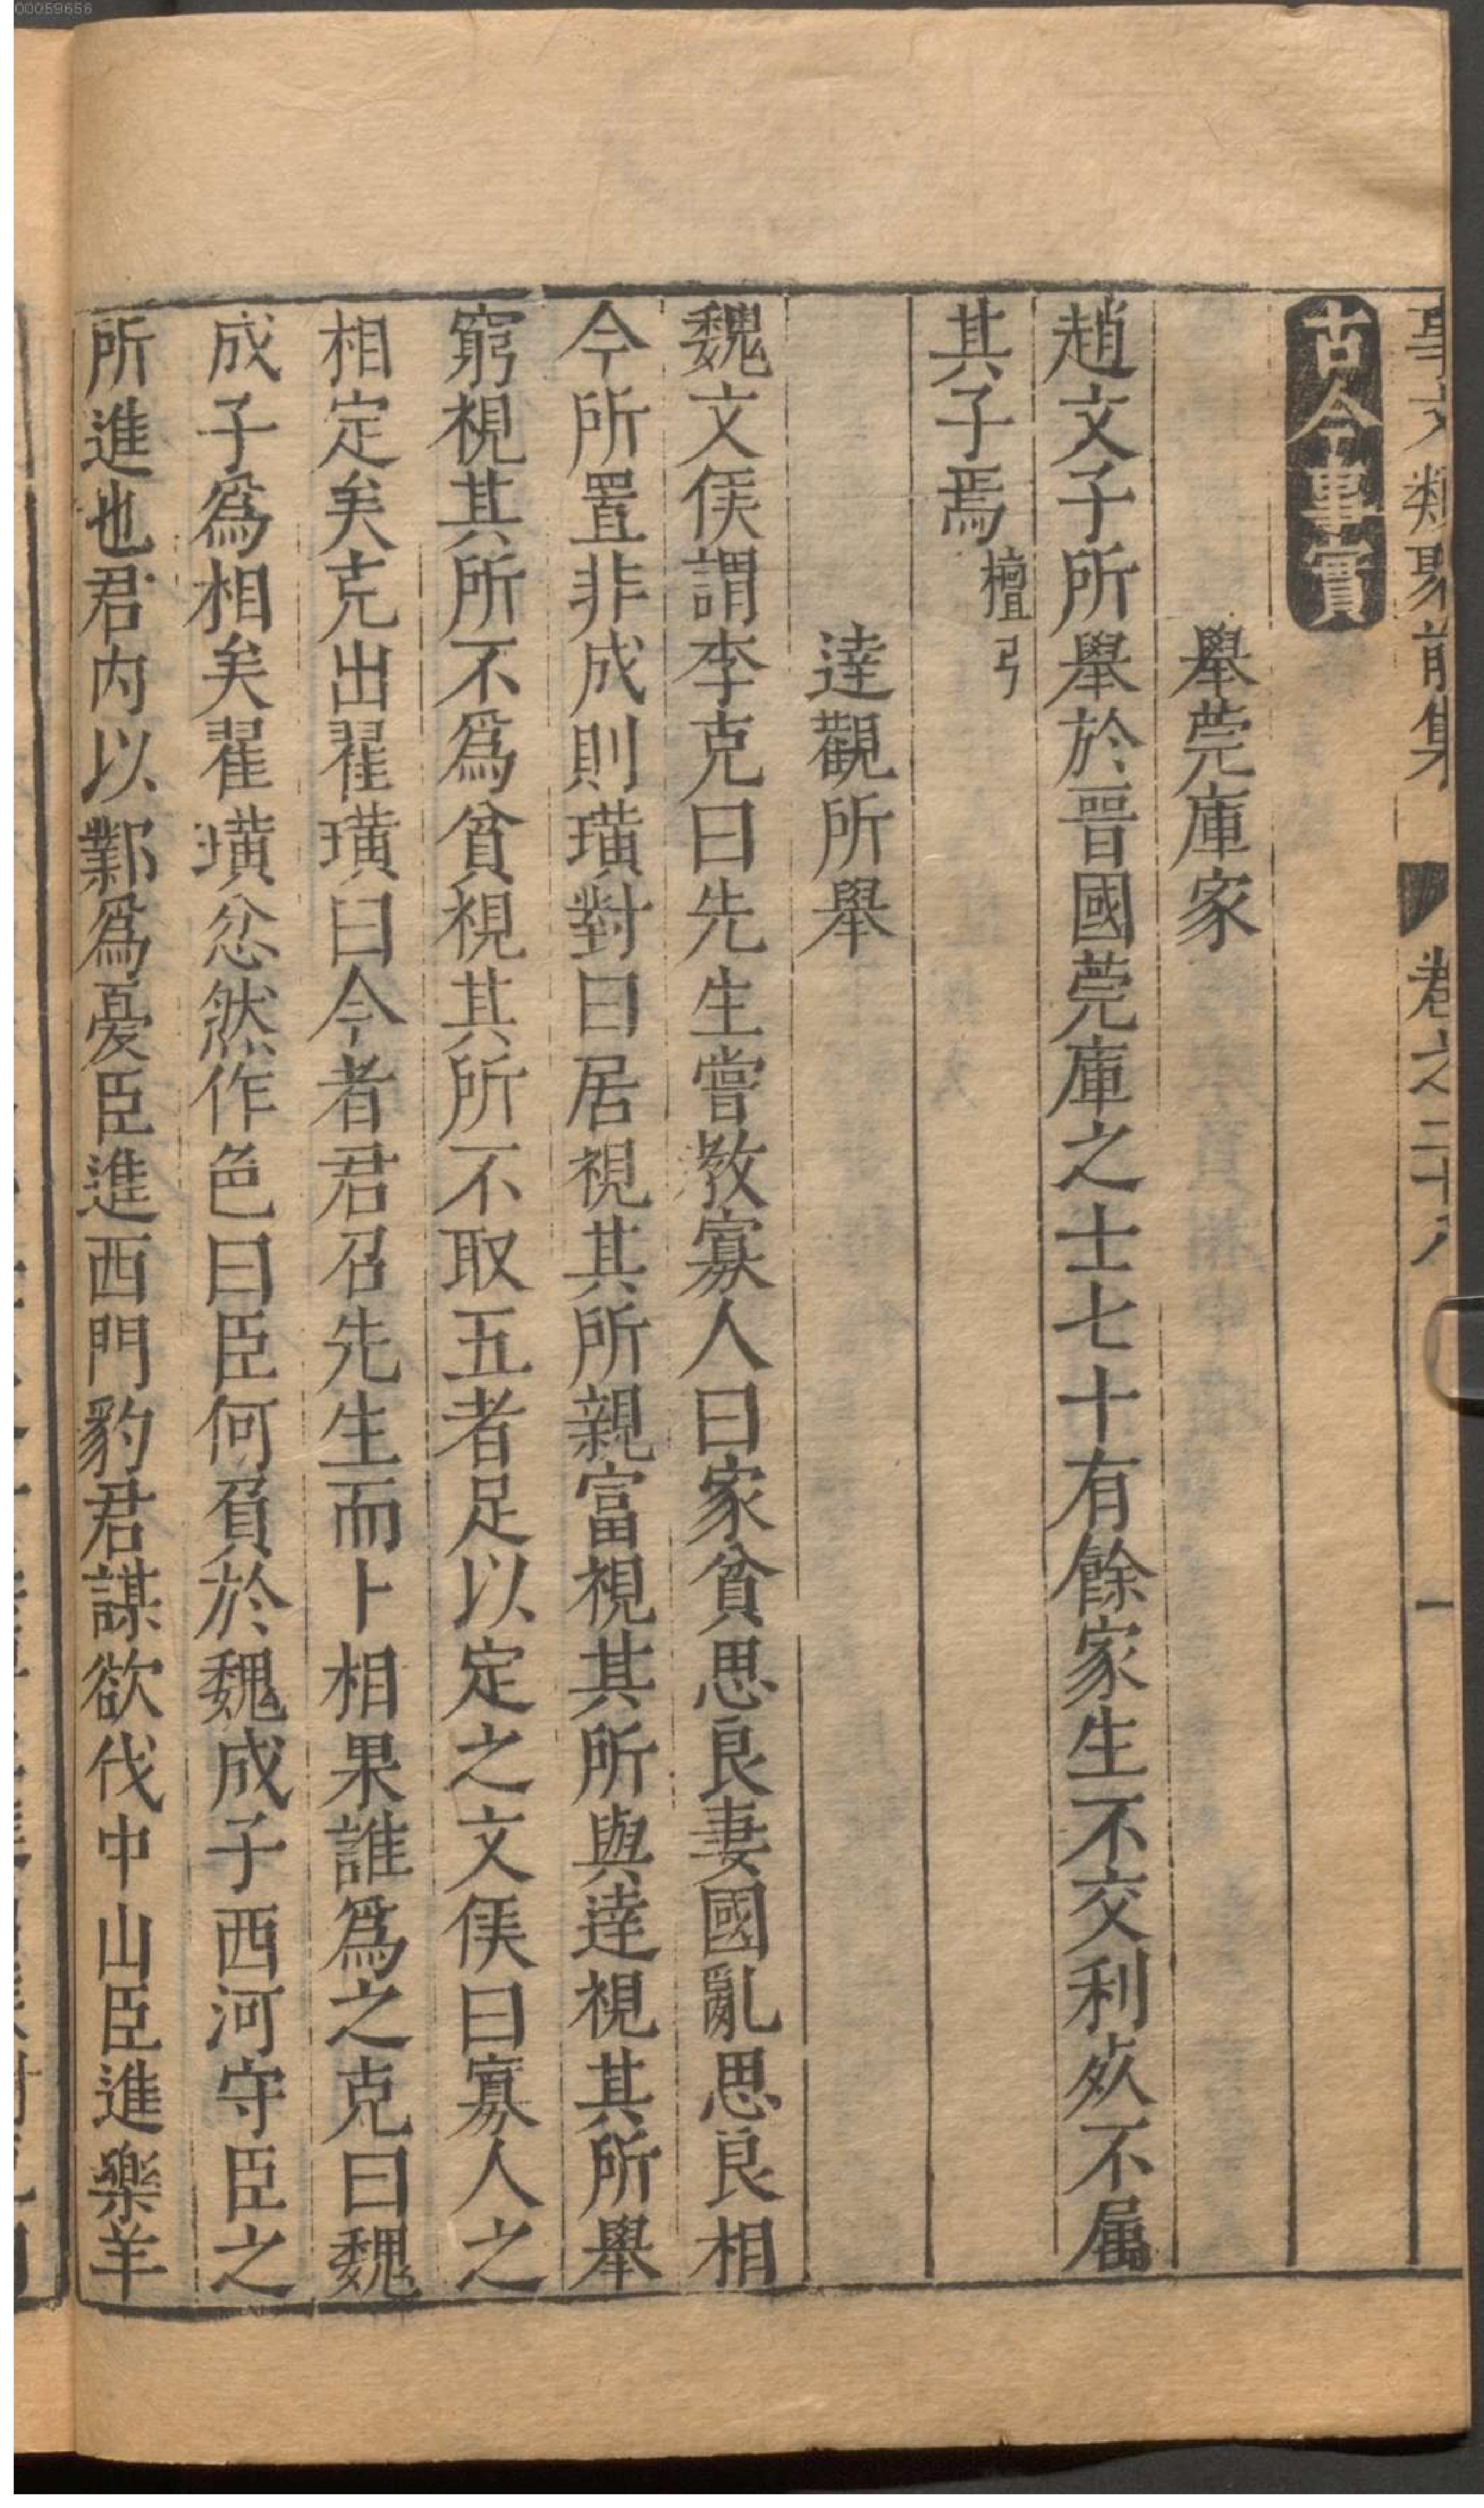 00059656
事文類聚前集 卷之二十八 一
古今事實
舉莞庫家
趙文子所舉於晉國莞庫之士七十有餘家生不交利死不属
其子焉檀弓
達觀所舉
魏文侯謂李克曰先生嘗教寡人曰家貧思良妻國亂思良相
今所置非成則璜對曰居視其所親富視其所與達視其所舉
窮視其所不爲貧視其所不取五者足以定之文侯曰寡人之
相定矣克出翟璜曰今者君召先生而卜相果誰爲之克曰魏
成子爲相矣翟璜忿然作色曰臣何負於魏成子西河守臣之
所進也君内以鄴爲憂臣進西門豹君謀欲伐中山臣進樂羊